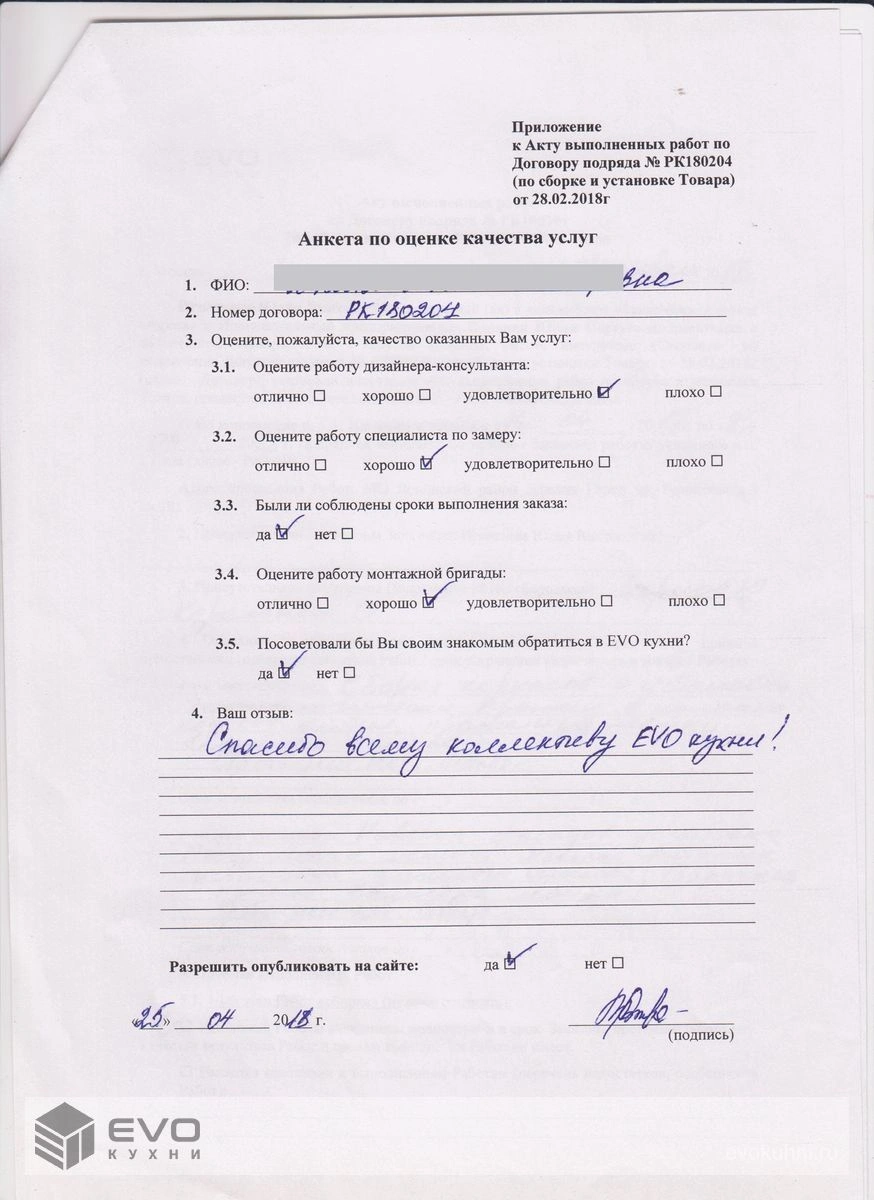 Приложение
к Акту выполненных работ по
Договору подряда № РК180204
(по сборке и установке Товара)
от 28.02.2018г
Анкета по оценке качества услуг
1. ФИО: вна
2. Номер договора: РК180204
3. Оцените, пожалуйста, качество оказанных Вам услуг:
3.1. Оцените работу дизайнера-консультанта:
отлично ☐ хорошо ☐ удовлетворительно ☑ плохо ☐
3.2. Оцените работу специалиста по замеру:
отлично ☐ хорошо ☑ удовлетворительно ☐ плохо ☐
3.3. Были ли соблюдены сроки выполнения заказа:
да ☑ нет ☐
3.4. Оцените работу монтажной бригады:
отлично ☐ хорошо ☑ удовлетворительно ☐ плохо ☐
3.5. Посоветовали бы Вы своим знакомым обратиться в EVO кухни?
да ☑ нет ☐
4. Ваш отзыв:
Спасибо всему коллективу EVO кухни!
Разрешить опубликовать на сайте: да ☑ нет ☐
«25» 04 2018 г.
(подпись)
EVO
КУХНИ
evokuhni.ru